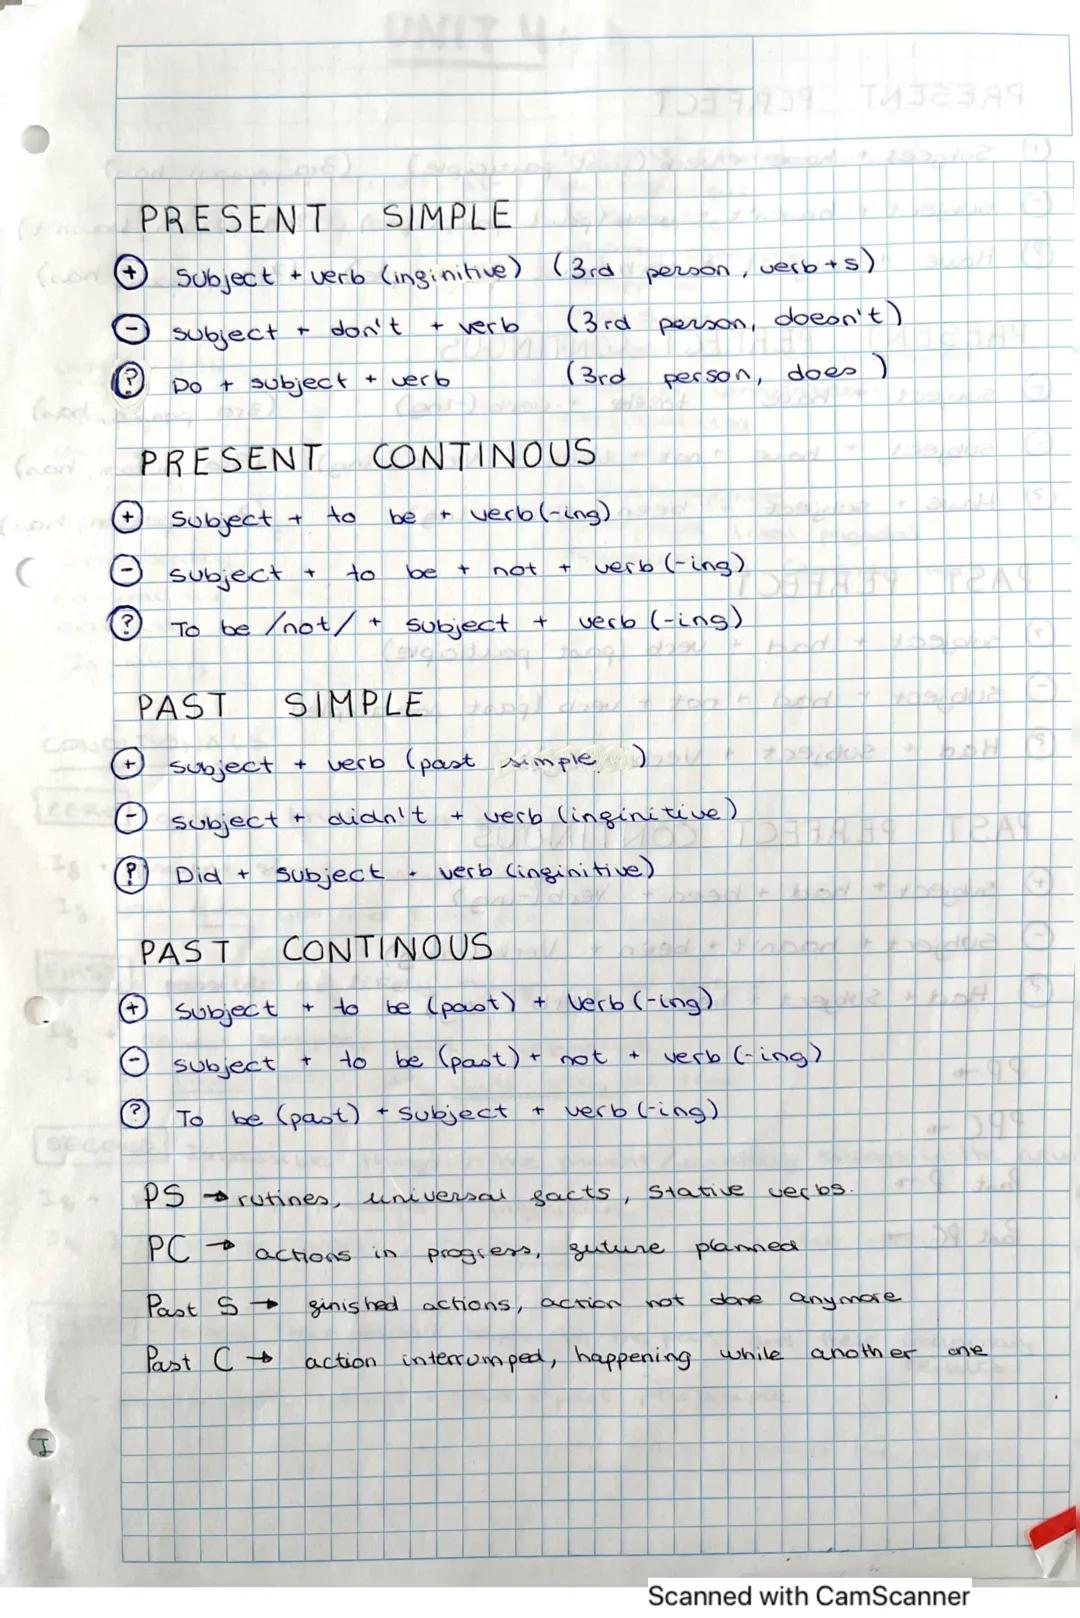 PRESENT SIMPLE
+ Subject + verb (inginitive) (3rd person, verb+s)
- subject + don't + verb (3rd person, doesn't)
? Do + subject + verb (3rd person, does)
PRESENT CONTINOUS
+ Subject + to be + verb (-ing)
- subject + to be + not + verb (-ing)
? To be /not/ + subject + verb (-ing)
PAST SIMPLE
+ subject + verb (past simple)
- subject + didn't + verb (inginitive)
? Did + subject + verb (inginitive)
PAST CONTINOUS
+ Subject + to be (past) + Verb (-ing)
- subject + to be (past) + not + verb (-ing)
? To be (past) + subject + verb (-ing)
PS → rutines, universal gacts, stative verbs.
PC → actions in progress, guture planned
Past S → ginished actions, action not done anymore
Past C → action interrumped, happening while another one
Scanned with CamScanner